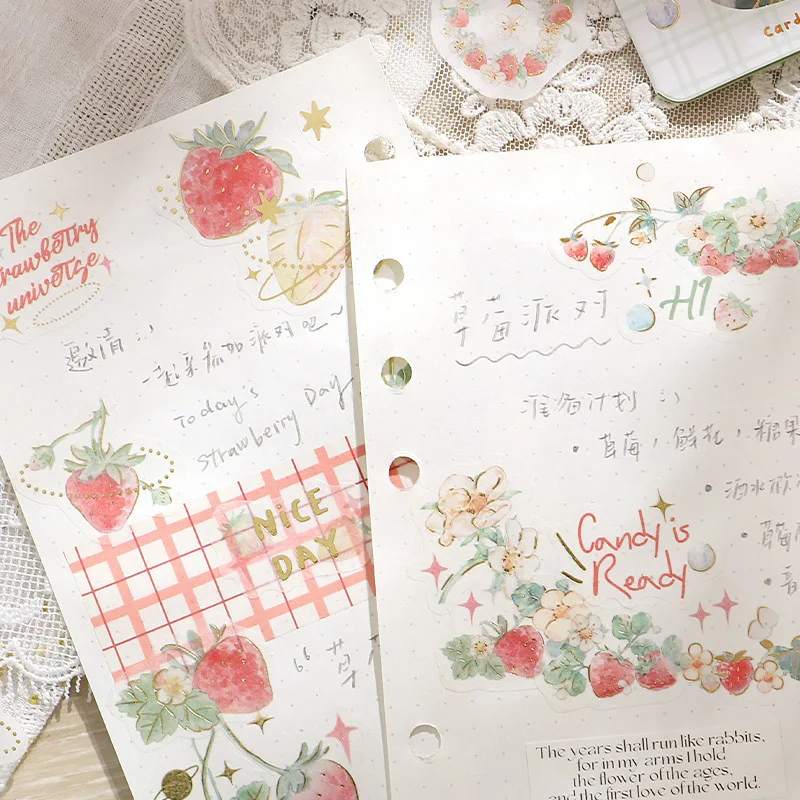 The
strawberry
universe
邀请 :)
一起来参加派对吧~
Today's
strawberry Day
NiCE
DAY
“草
Card
HI
草莓派对
准备计划 :)
• 草莓，鲜花，糖果
• 酒水饮
• 草莓
• 音
Candy is
Ready
The years shall run like rabbits,
for in my arms I hold
the flower of the ages,
and the first love of the world.